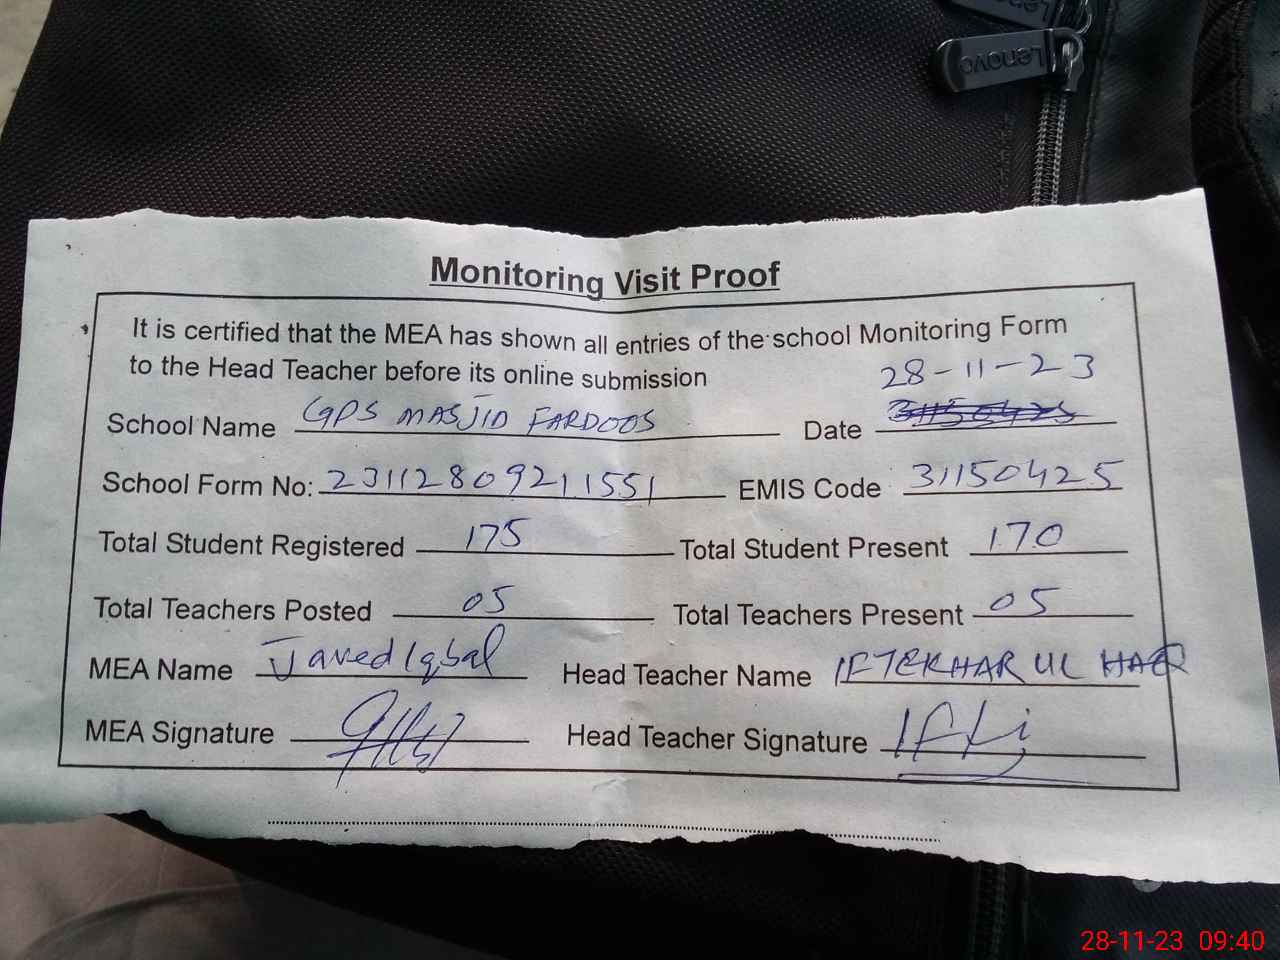 Lenovo
Monitoring Visit Proof
It is certified that the MEA has shown all entries of the school Monitoring Form
to the Head Teacher before its online submission
28-11-23
School Name GPS MASJID FARDOOS Date
School Form No: 23112809211551 EMIS Code 31150425
Total Student Registered 175 Total Student Present 170
Total Teachers Posted 05 Total Teachers Present 05
MEA Name Javed Iqbal Head Teacher Name IFTEKHAR UL HAQ
MEA Signature Head Teacher Signature
28-11-23 09:40